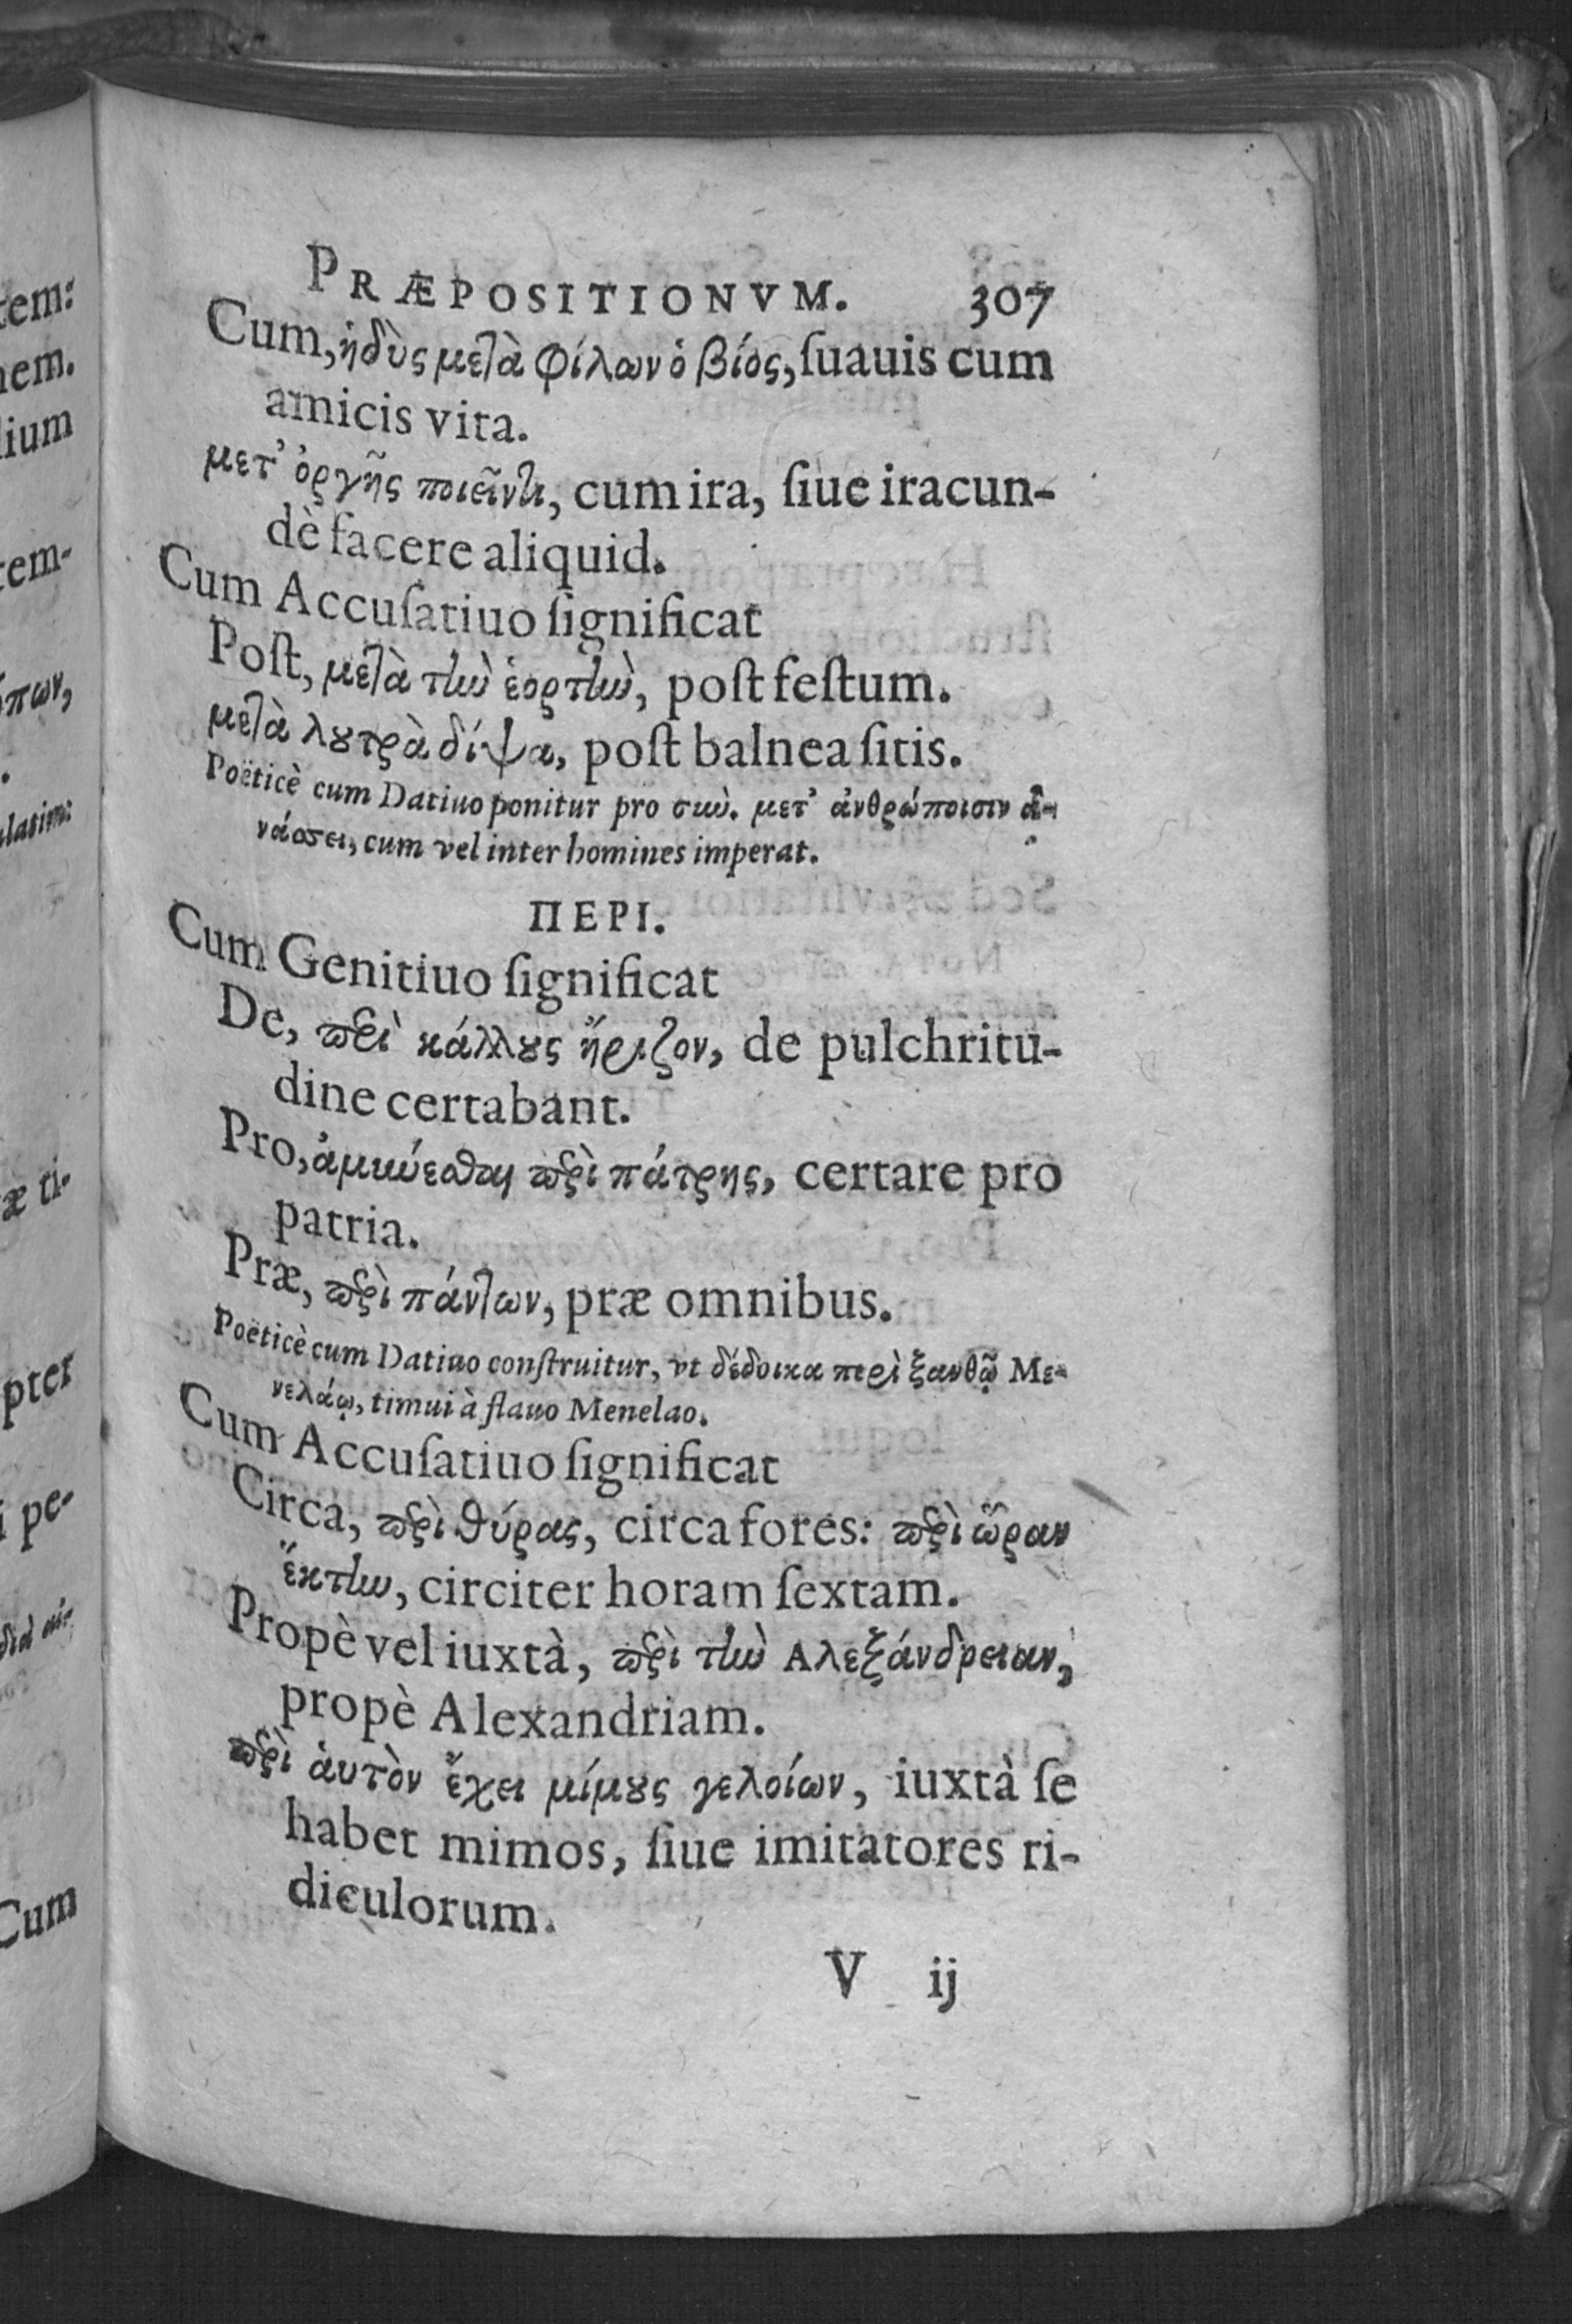 PRÆPOSITIONVM. 307
Cum, ἡδὺς μετὰ φίλων ὁ βίος, ſuauis cum
amicis vita.
μετ' ὀργῆς ποιεῖν τι, cum ira, ſiue iracun-
dè facere aliquid.
Cum Accuſatiuo ſignificat
Poſt, μετὰ τὴν ἑορτὴν, poſt feſtum.
μετὰ λουτρὰ δίψα, poſt balnea ſitis.
Poëticè cum Datiuo ponitur pro σὺν. μετ' ἀνθρώποισιν ἀ-
νάσσει, cum vel inter homines imperat.
ΠΕΡΙ.
Cum Genitiuo ſignificat
De, περὶ κάλλους ἤριζον, de pulchritu-
dine certabant.
Pro, ἀμυνέσθαι περὶ πάτρης, certare pro
patria.
Præ, περὶ πάντων, præ omnibus.
Poëticè cum Datiuo conſtruitur, vt δέδοικα περὶ ξανθῷ Με-
νελάῳ, timui à flauo Menelao.
Cum Accuſatiuo ſignificat
Circa, περὶ θύρας, circa fores: περὶ ὥραν
ἕκτην, circiter horam ſextam.
Propè vel iuxtà, περὶ τὴν Αλεξάνδρειαν,
propè Alexandriam.
περὶ ἁυτὸν ἔχει μίμους γελοίων, iuxtà ſe
habet mimos, ſiue imitatores ri-
diculorum.
V ij
tem:
nem.
lium
tem-
ώπων,
ulatim:
æ ti-
pter
i pe-
διὰ
Cum